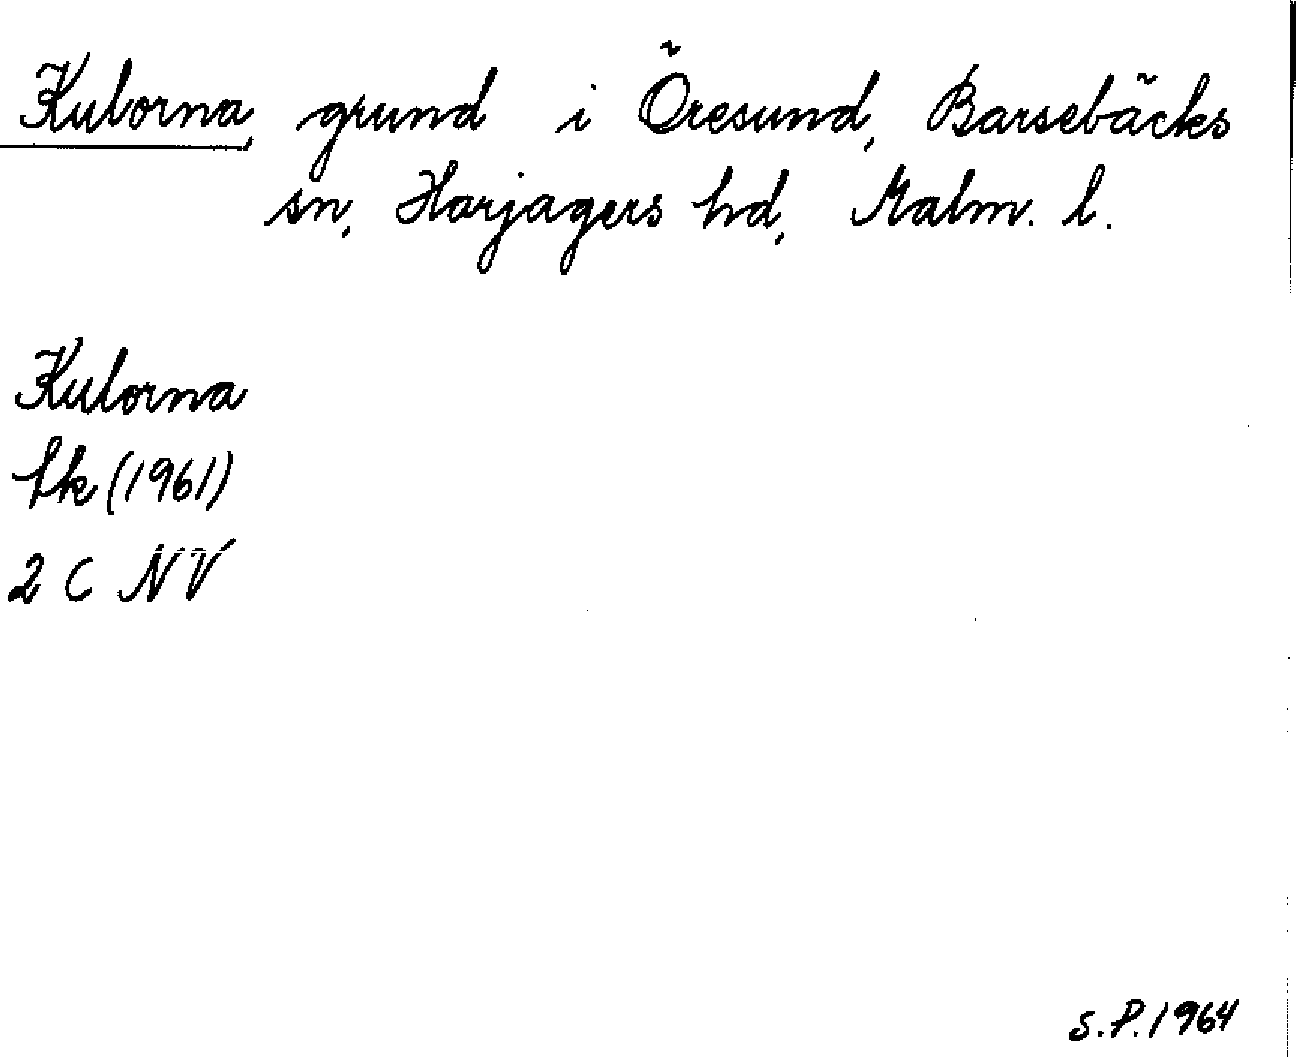 Kulorna, grund i Öresund, Barsebäcks
sn, Harjagers hd, Malm. l.
Kulorna
Ek (1961)
2 C NV
S.P. 1964